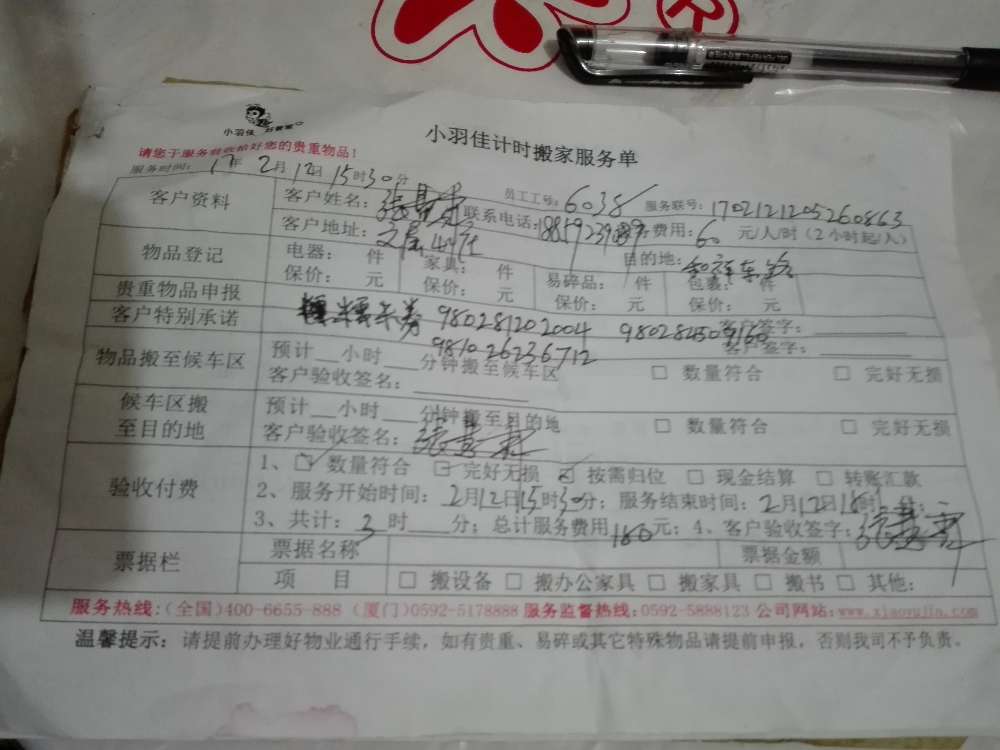 小羽佳
小羽佳计时搬家服务单
请您于服务前收拾好您的贵重物品！
服务时间：17年2月12日15时30分 员工工号：6038 服务联号：1702121205260863
客户资料 客户姓名： 联系电话： 费用：60元/人/时（2小时起/人）
客户地址： 目的地：
物品登记 电器： 件 家具： 件 易碎品： 件 包装： 件
保价： 元 保价： 元 保价： 元 保价： 元
贵重物品申报 客户签字：
980281202004
客户特别承诺 981026236712 客户签字：
物品搬至候车区 预计__小时___分钟搬至候车区
客户验收签名： □ 数量符合 □ 完好无损
候车区搬至目的地 预计__小时___分钟搬至目的地
客户验收签名： □ 数量符合 □ 完好无损
验收付费 1、□ 数量符合 □ 完好无损 □ 按需归位 □ 现金结算 □ 转账汇款
2、服务开始时间：2月12日15时30分；服务结束时间：2月12日18时 分；
3、共计：3时 分；总计服务费用180元；4、客户验收签字：
票据栏 票据名称 票据金额
项 目 □ 搬设备 □ 搬办公家具 □ 搬家具 □ 搬书 □ 其他：
服务热线：(全国)400-6655-888 (厦门)0592-5178888 服务监督热线：0592-5888123 公司网站：www.xiaoyujia.com
温馨提示：请提前办理好物业通行手续，如有贵重、易碎或其它特殊物品请提前申报，否则我司不予负责。